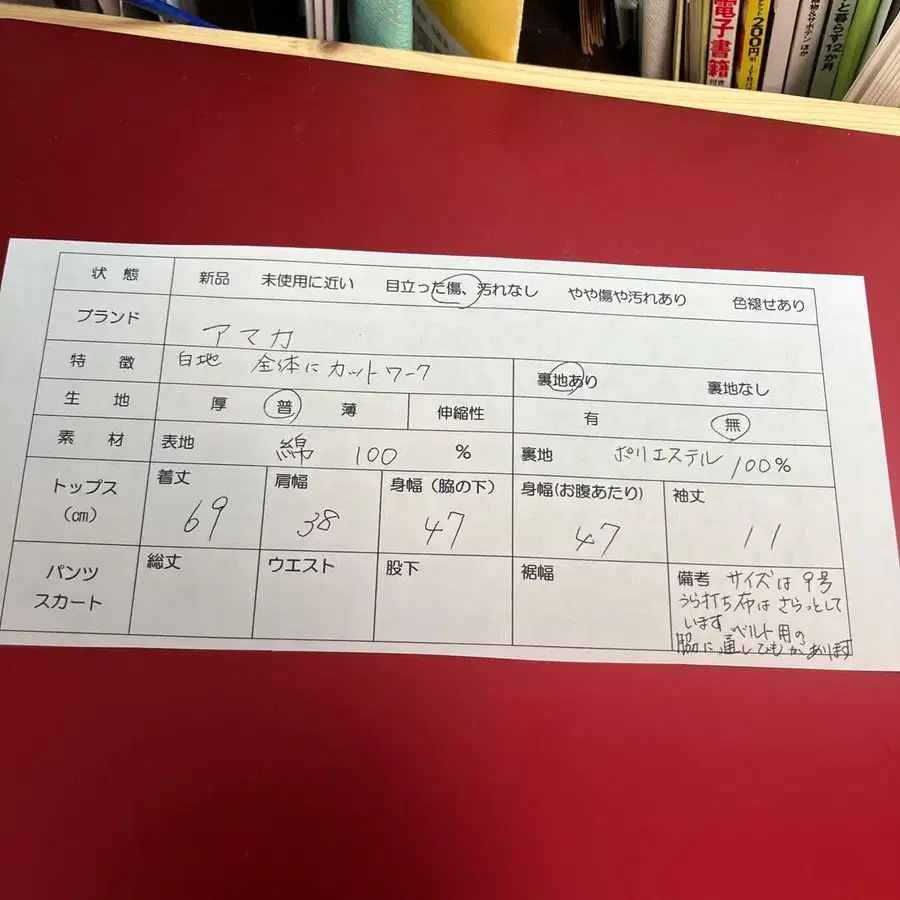 電子書籍
付き
200円
と暮らす12か月
状態 新品 未使用に近い 目立った傷、汚れなし やや傷や汚れあり 色褪せあり
ブランド アマカ
特徴 白地 全体にカットワーク 裏地あり 裏地なし
生地 厚 普 薄 伸縮性 有 無
素材 表地 綿 100 % 裏地 ポリエステル 100%
トップス (cm) 着丈 69 肩幅 38 身幅(脇の下) 47 身幅(お腹あたり) 47 袖丈 11
パンツ スカート 総丈 ウエスト 股下 裾幅
備考 サイズは9号
うら打ち布はさらっとして
います ベルト用の
脇に通しひもがあります